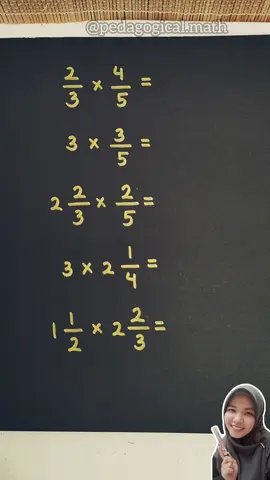 @pedagogical.math
2/3 × 4/5 =
3 × 3/5 =
2 2/3 × 2/5 =
3 × 2 1/4 =
1 1/2 × 2 2/3 =